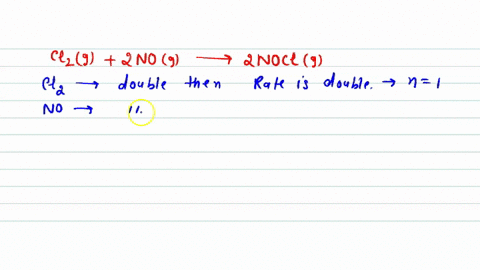 Cl₂(g) + 2NO(g) → 2NOCl(g)
Cl₂ → double then Rate is double. → n = 1
NO → 11.